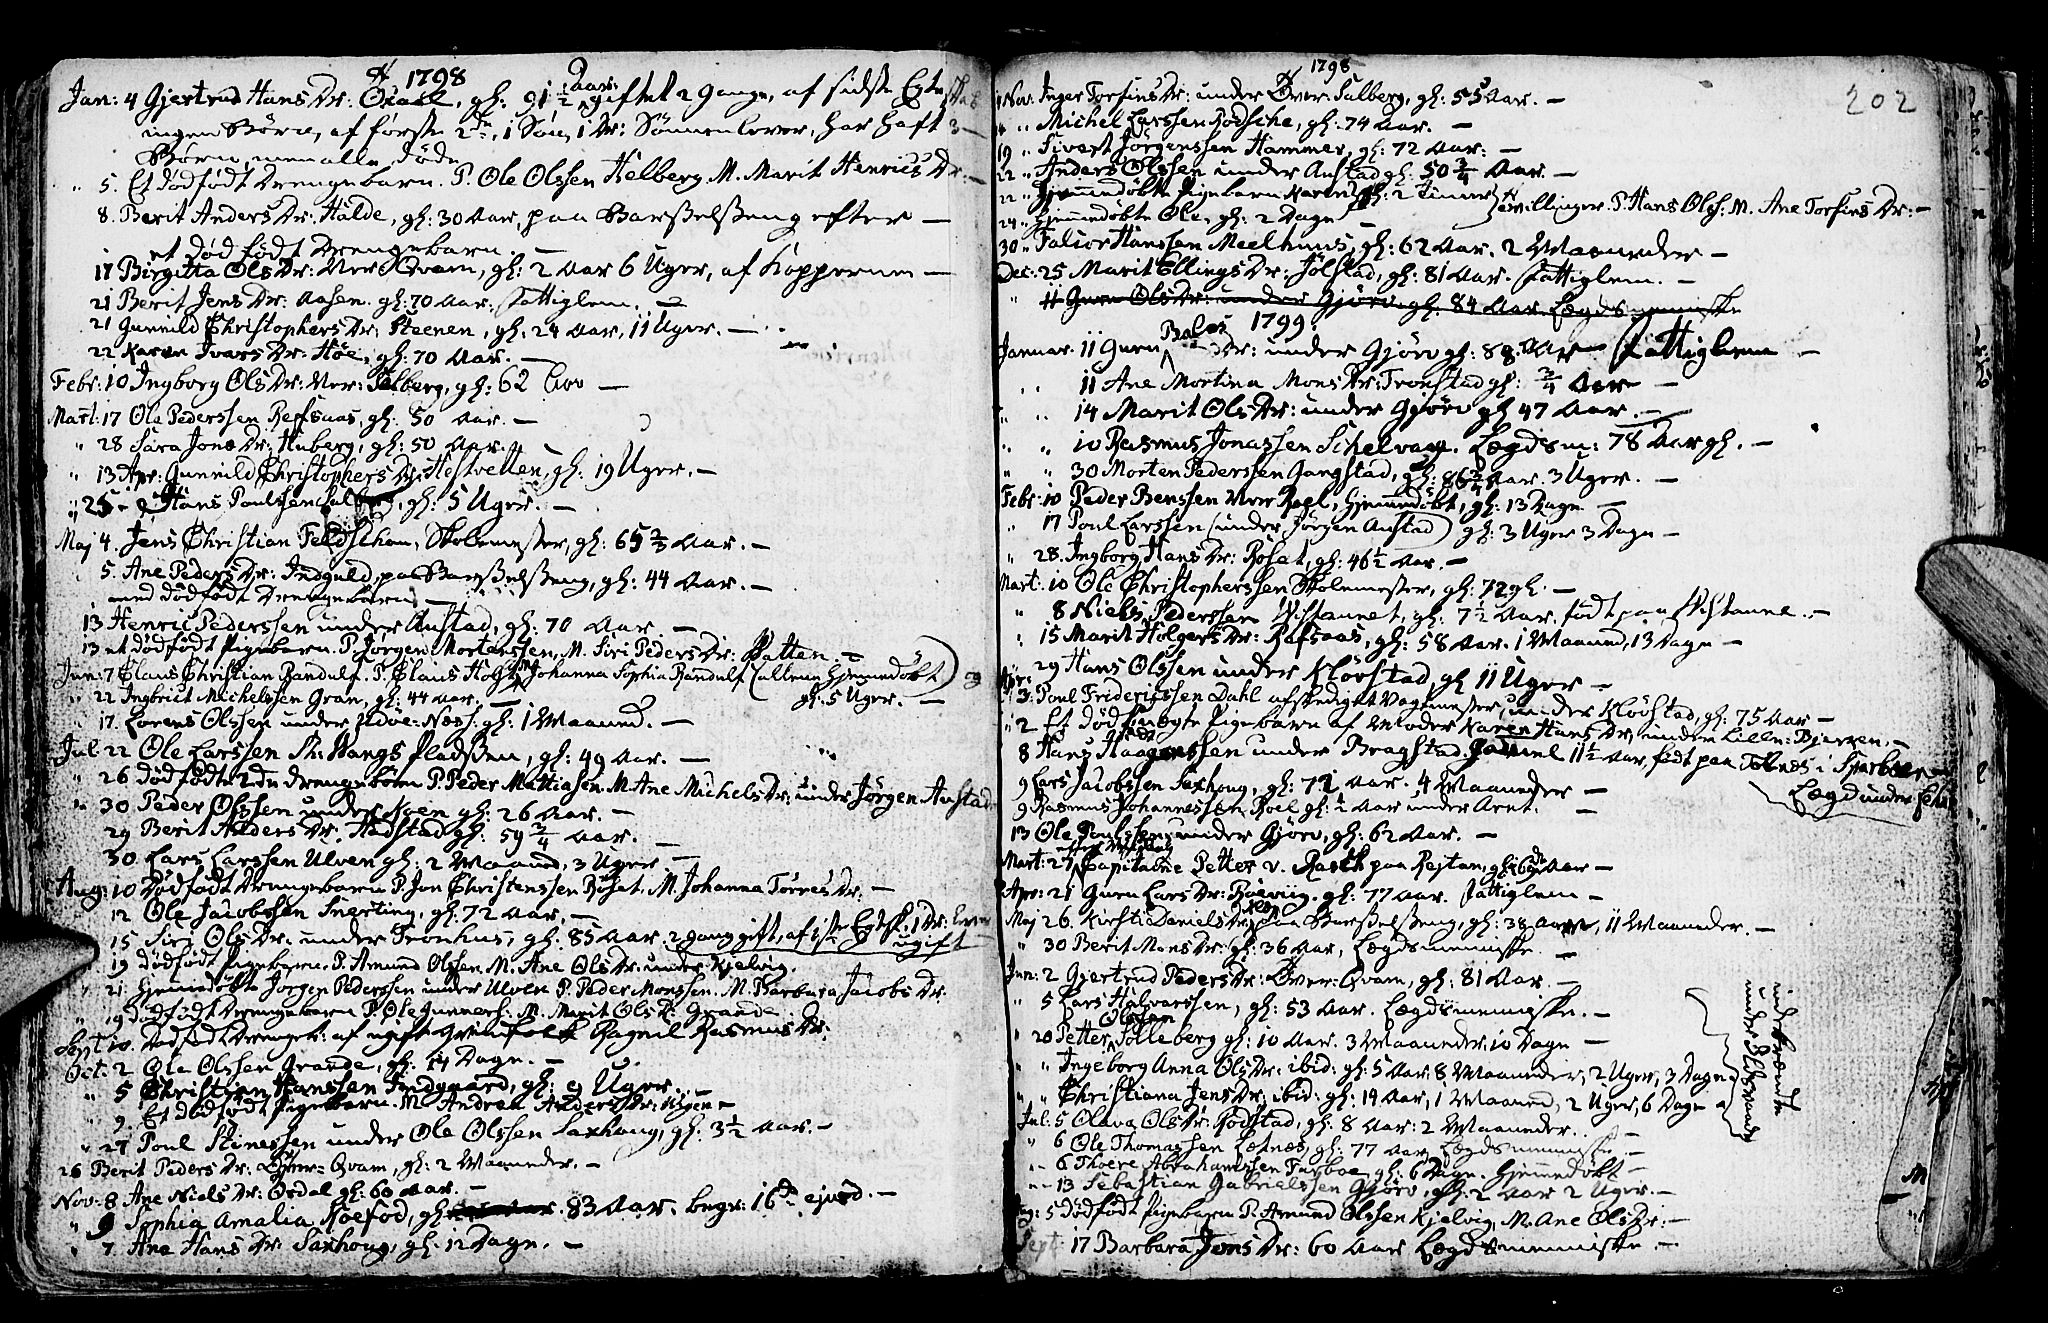 1798
Jan: 4 Gjertrud Hans Dr: gl: 91 1/2 Aar giftet 2 Gange, af sidste Egte
ingen Børn, af første 2de, 1 Søn, 1 Dr: Sønnen lever, har haft 3
Børn, men alle døde
" 5. Et dødfødt Drengebarn. P. Ole Olssen Helberg M. Marit Henrics Dr: —
8. Berit Anders Dr: Halde, gl: 30 Aar, paa Barselseng efter —
et død født Drengebarn. —
17 Birgitta Ols Dr: Ner Qvam, gl: 2 Aar 6 Uger, af Kopperne —
21 Berit Jens Dr: Aasen. gl: 70 Aar. Fattiglem. —
21 Gunnild Christophers Dr: Steenen, gl: 24 Aar, 11 Uger. —
22 Karen Ivars Dr: Høe, gl: 70 Aar. —
Febr: 10 Ingborg Ols Dr: Ner: Salberg, gl: 62 —
Mart: 17 Ole Pederssen Refsaas, gl: 50 Aar. —
" 28 Sara Jons Dr: Huberg, gl: 50 Aar. —
" 13 Apr: Gunnild Christophers Dr: Hestvetten, gl: 19 Uger. —
" 25 Hans Poulssen gl: 5 Uger. —
Maj 4. Jens Christian Feldsthom, Skolemester, gl: 65 2/3 Aar. —
5. Ane Peders Dr: Indguld, paa Barselseng, gl: 44 Aar. —
med dødfødt Drengebarn —
13 Henric Pederssen under Austad, gl: 70 Aar —
13 et dødfødt Pigebarn. P. Jørgen Mortenssen, M. Siri Peders Dr: Ratten —
Jun: 7 Claus Christian Randulf. P. Claus Johanna Sophia Randulf (allene hjemmedøbt) og
gl: 5 Uger. —
" 22 Ingbrict Michelssen Gran, gl: 44 aar. —
" 17. Lorens Olssen under Udøe: Næss. gl: 1 Maaned. —
Jul: 22 Ole Larssen Pladssen, gl: 49 Aar. —
" 26 dødfødte 2de drengebørn P. Peder Mattiasen. M. Ane Michels Dr: under Jørgen Austad
" 30 Peder Olssen under Koen gl: 26 Aar. —
29 Berit Anders Dr: Hadstad gl: 59 3/4 Aar.
30. Lars Larssen Ulven gl: 2 Maaned, 3 Uger —
Aug: 10 Dødfødt Drengebarn P. Jon Christenssen Røsat. M. Johanna Torres Dr: —
12 Ole Jacobssen Snerting, gl: 72 Aar. —
15 Siri Ols Dr: under Tronhus, gl: 85 Aar 2 gang gift, af 1ste Egtesk. 1 Dr: lever
ugift
" 19 dødfødt Pigebarn. P. Amund Olssen. M. Ane Ols Dr: under Kjelvig.
" 21. Hjemmedøbte Jørgen Pederssen under Ulven P. Peder Monssen. M. Barbara Jacobs Dr.
" 19 dødfødt Drengebarn P. Ole Gunnerss: M. Marit Ols Dr Grande
Sept: 10. Dødfødt Drengeb: af ugift Ragnil Rasmus Dr:
Oct: 2 Ole Olssen Grande, gl: 14 Dage. —
" 5 Christian Hanssen Indgaard, gl: 9 Uger. —
" 9. Et dødfødt Pigebarn. M. Andrea Anders Dr: —
" 27 Poul Stinessen under Ole Olssen Saxhoug, gl: 3 1/2 Aar. —
26 Berit Peders Dr: Øver= Qvam, gl: 2 Maaneder. —
Nov: 8 Ane Niels Dr: Ørdal gl: 60 Aar. —
" 9 Sophia Amalia Koefod, gl: 83 Aar. begr: 16de ejusd. —
" 7. Ane Hans Dr: Saxhoug, gl. 12 Dage. —
1798
202
Nov: Inger Torfins Dr: under Øver: Salberg, gl: 55 Aar. —
" Michel Larssen Rødsche, gl: 74 Aar. —
19 " Sivert Jørgenssen Hammer, gl: 72 Aar: —
22 " Anders Olssen under Austad gl: 50 3/4 Aar. —
22 " Hjemmedøbte Pigebarn Karen gl: 2 Timer
24 " Hjemmedøbte Ole, gl: 2 Dage } Tvillinger. P. Hans Olss: M. Ane Torfins Dr: —
30 " Falior Hanssen Meelhuus, gl: 62 Aar. 2 Maaneder —
Dec: 25 Marit Ellings Dr: Jølstad, gl: 81 Aar. Fattiglem. —
" 11 Guru Ols Dr: under Gjørv gl: 84 Aar Lægdsmenniske
1799.
Januar. 11 Guru Dr: under Gjørv gl: 88. Aar Fattiglem —
" 11 Ane Mortina Mons Dr: Tronstad gl: 3/4 Aar —
" " 14 Marit Ols Dr: under Gjørv gl 47 Aar. —
" " 10 Rasmus Jonassen Schelvag. Lægdsm: 78 Aar gl. —
" " 30 Morten Pederssen Gangstad, gl: 86 3/4 Aar. 3 Uger. —
Febr: 10 Peder Benssen Ner Roel, hjemmedøbt, gl: 13 Dage —
" 17 Poul Larssen (under Jørgen Austad) gl: 3 Uger 3 Dage —
" 28. Ingborg Hans Dr: Røsat, gl: 46 1/2 Aar. —
Mart: 10 Ole Christopherssen Skolemester, gl: 72 gl. —
" 8 Niels Pederssen Vistannet, gl: 7 1/2 Aar, født paa Vistanne. —
" 15 Marit Holgers Dr: Rafsaas, gl: 58 Aar. 1 Maaned, 13 Dage —
" 29 Hans Olssen under Kløvstad, gl 11 Uger —
Apr: 3. Poul Fridericssen Dahl afskediget Vagtmester, under Kløvstad, gl: 75 Aar —
" 2 Et dødfødt uægte Pigebarn af Moder Karen Hans Dr, under Lille= Bjerken. —
8 Hans Haagenssen under Bragstad. gammel 11 1/2 Aar, født paa i Sparboe
Lægd under
9 Lars Jacobssen Saxhoug, gl: 72 Aar. 4 Maaneder —
9 Rasmus Johannessen Roel gl: 1/2 Aar under Arnt. —
13 Ole Poulssen under Gjørv, gl: 62 Aar. —
Mart: 27 Capitaine Petter v. Rasch paa Rostan, gl: 60 Aar —
Apr: 21 Guru Lars Dr: Roesviig. gl: 77 Aar. Fattiglem —
Maj 26. Kirsti Daniels Dr: paa Barselseng, gl: 38 Aar, 11 Maaneder. —
" 30 Berit Mons Dr: gl: 36 Aar, Lægdsmenniske. —
Jun: 2 Gjertrud Peders Dr: Øver: Qvam, gl: 81 Aar. —
" 5 Lars Halvarssen, gl: 53 Aar. Lægdsmenniske. —
" 20 Petter Olssen Solleberg gl: 10 Aar. 3 Maaneder. 10 Dage —
" " Ingeborg Anna Ols Dr: ibid: gl: 5 Aar 8 Maaneder, 2 Uger, 3 Dage
" " Christiana Jens Dr: ibid: gl: 14 Aar, 1 Maaned, 2 Uger, 6 Dage
indebrændte
under Ildsvaade
Jul: 5 Olava Ols Dr: Rødstad, gl: 8 Aar: 2 Maaneder. —
" 6 Ole Thomassen Letnæs, gl: 77 Aar Lægdsmenniske. —
" 6 Thore Abrahamssen Furboe gl: 6 Dage. Hjemmedøbt —
" 13 Sebastian Gabrielssen Gjørv, gl: 2 Aar 2 Uger. —
Aug: 5 dødfødt Pigebarn P. Amund Olssen Kjelvig, M. Ane Ols Dr: —
Sept: 17 Barbara Jons Dr: 60 Aar Lægdsmenniske. —